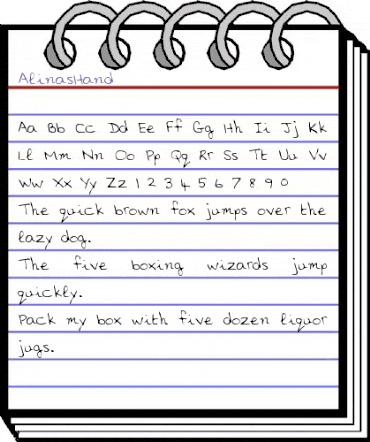 AlinasHand
Aa Bb Cc Dd Ee Ff Gg Hh Ii Jj Kk
Ll Mm Nn Oo Pp Qq Rr Ss Tt Uu Vv
Ww Xx Yy Zz 1 2 3 4 5 6 7 8 9 0
The quick brown fox jumps over the
lazy dog.
The five boxing wizards jump
quickly.
Pack my box with five dozen liquor
jugs.